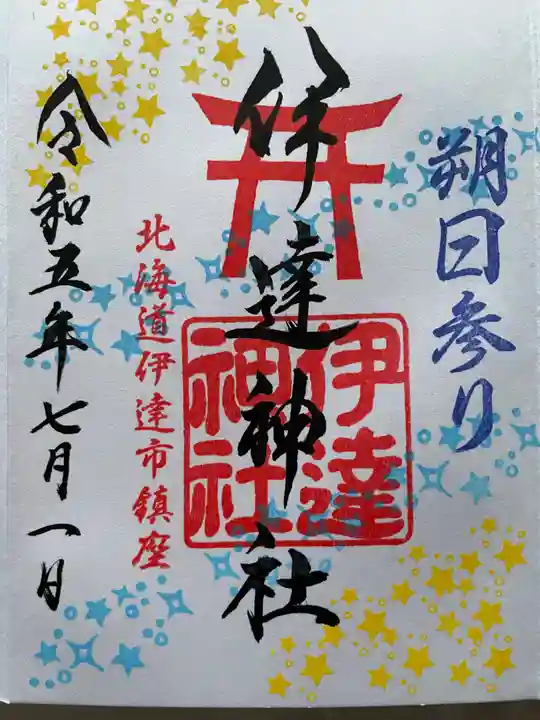 朔日参り
伊達神社
伊達
神社
北海道伊達市鎮座
令和五年七月一日